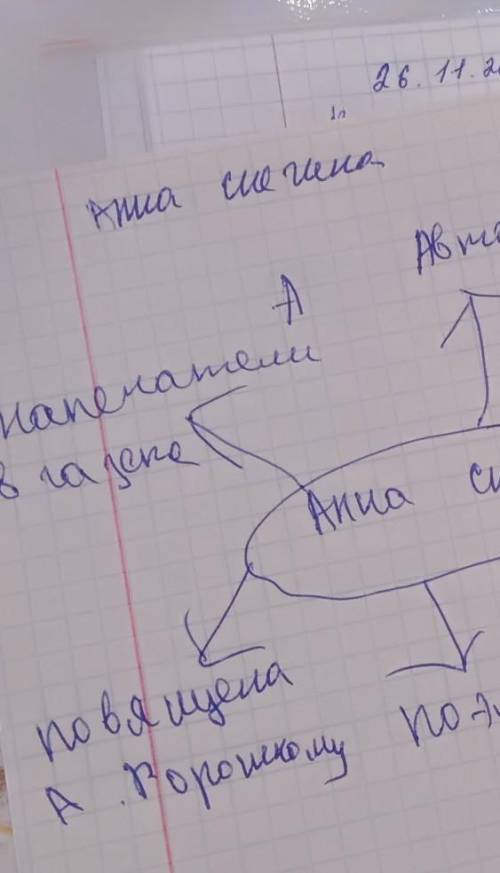 26.11.2
Анна снегина
Авто
А
напечатали
в газете
Анна сн
повящена
А. Воронскому
поэ